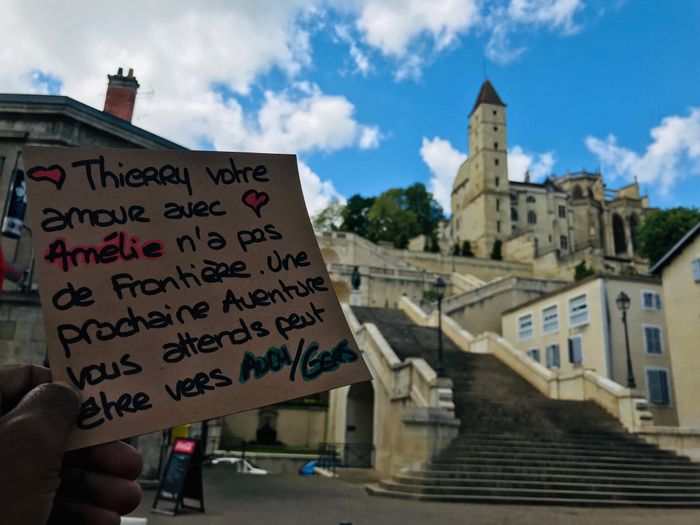 ♥ Thierry votre
amour avec ♥
Amélie n'a pas
de Frontière. Une
prochaine Aventure
vous attends peut
être vers AUCH/Gers